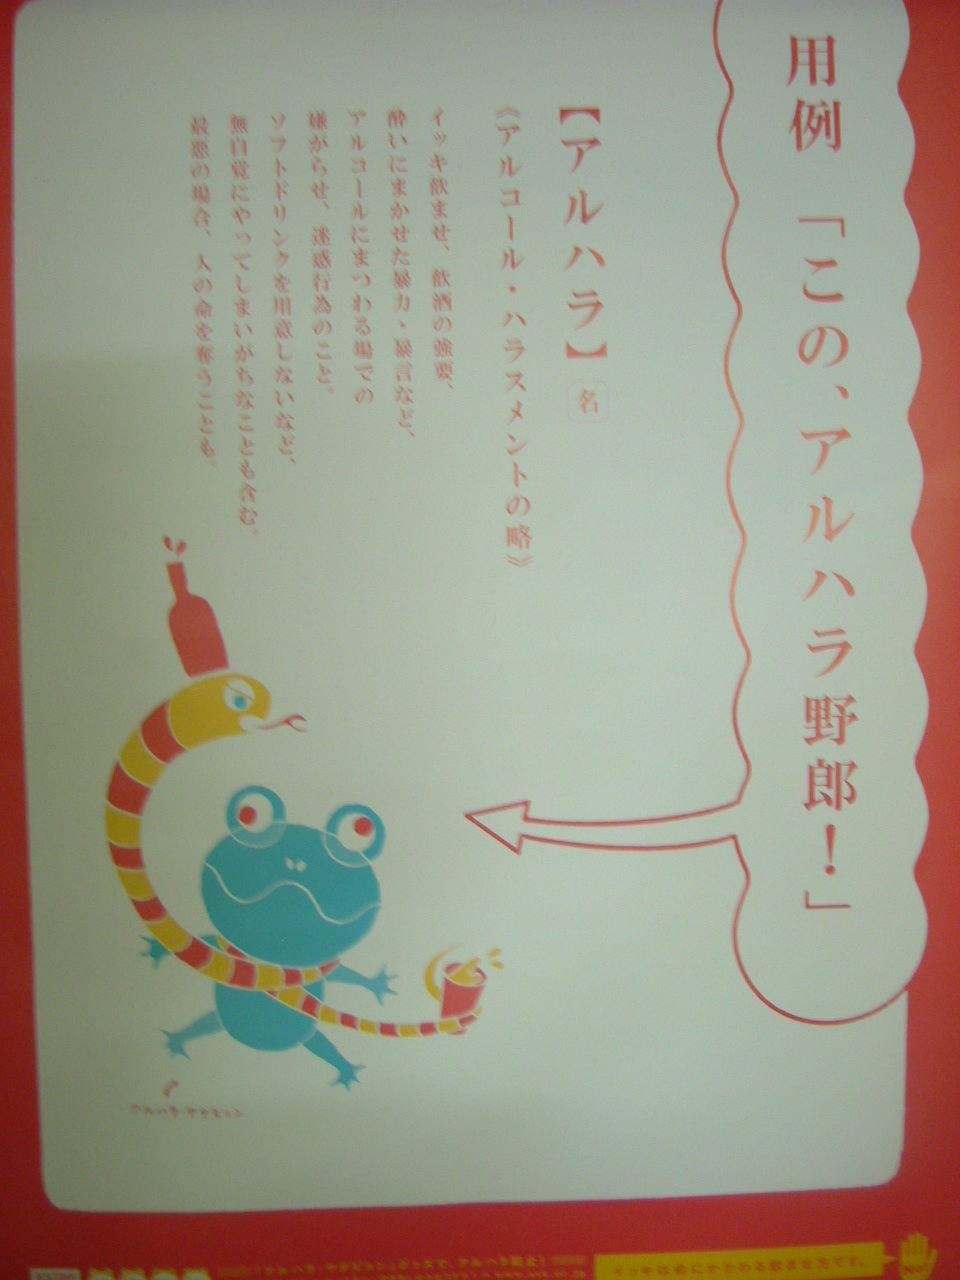 用例「この、アルハラ野郎！」
【アルハラ】名
《アルコール・ハラスメントの略》
イッキ飲ませ、飲酒の強要、
酔いにまかせた暴力・暴言など、
アルコールにまつわる場での
嫌がらせ、迷惑行為のこと。
ソフトドリンクを用意しないなど、
無自覚にやってしまいがちなことも含む。
最悪の場合、人の命を奪うことも。